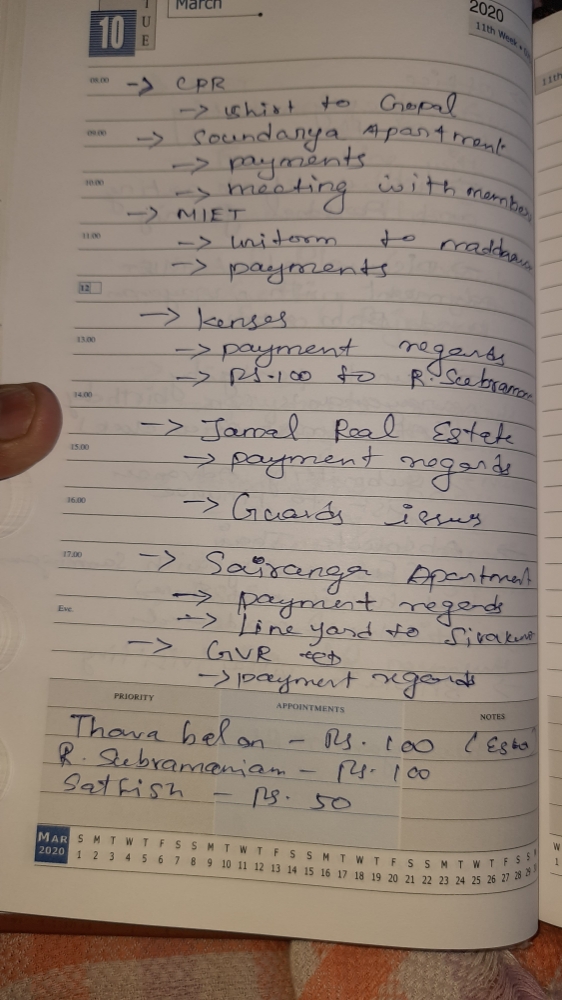 10
TUE
March
2020
11th Week
08.00
→ CPR
→ shirt to Gopal
09.00
→ Soundarya Apartment
→ payments
10.00
→ meeting with members
→ MIET
11.00
→ uniform to
→ payments
12
→ kenses
13.00
→ payment regards
→ Rs.100 to R. Subraman
14.00
→ Jamal Real Estate
15.00
→ payment regards
16.00
→ Guards issus
17.00
→ Sairanga Apartment
→ payment regards
Eve.
→ Line yard to Sivakum
→ GVR
→ payment regards
PRIORITY APPOINTMENTS NOTES
Thava belan - Rs. 100
R. Subramaniam - Rs. 100
Satfish - Rs. 50
MAR 2020
S M T W T F S S M T W T F S S M T W T F S S M T W T F S S
1 2 3 4 5 6 7 8 9 10 11 12 13 14 15 16 17 18 19 20 21 22 23 24 25 26 27 28 29